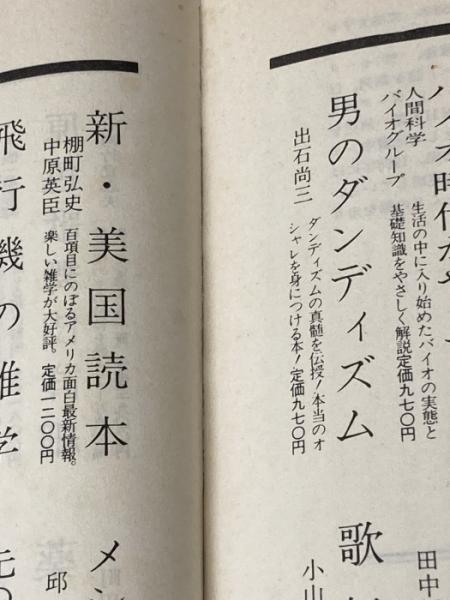 人間科学
バイオグループ
生活の中に入り始めたバイオの実態と
基礎知識をやさしく解説定価九七〇円
田中
男のダンディズム
出石尚三
ダンディズムの真髄を伝授!本当のオ
シャレを身につける本!定価九七〇円
歌
小山
新・美国読本
棚町弘史
中原英臣
百項目にのぼるアメリカ面白最新情報。
楽しい雑学が大好評。定価一二〇〇円
メン
邱
飛行機の雑学
元の